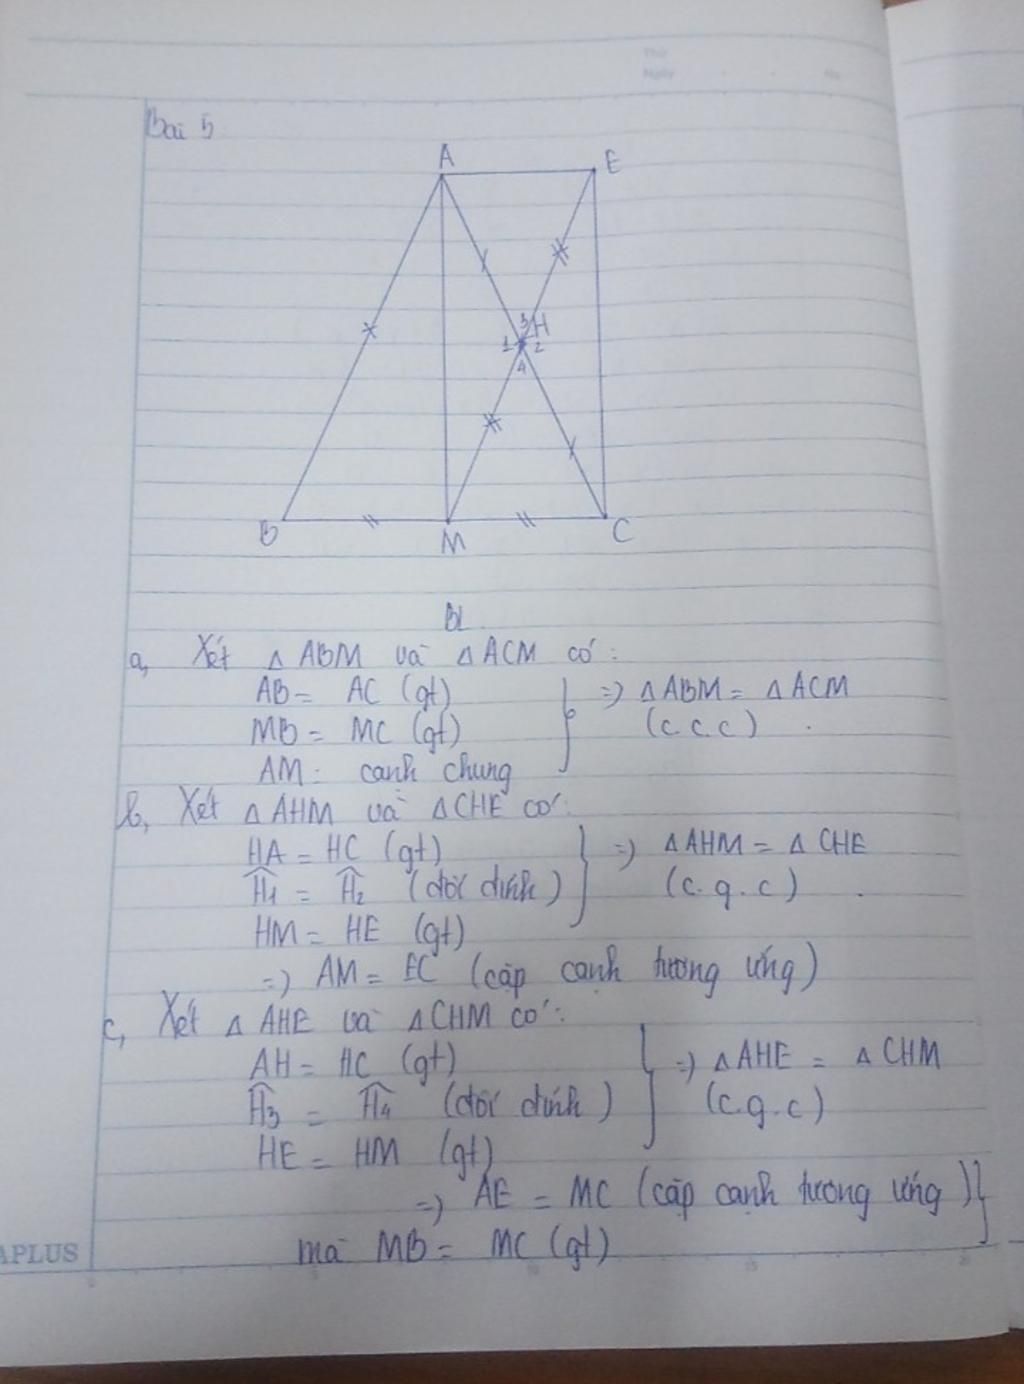 Thứ
Ngày
No
Bài 5
A
E
3 H
1 2
4
B
M
C
BL
a, Xét Δ ABM và Δ ACM có:
AB = AC (gt)
MB = MC (gt)
AM: cạnh chung
=) Δ ABM = Δ ACM
(c.c.c)
b, Xét Δ AHM và Δ CHE có:
HA = HC (gt)
Ĥ1 = Ĥ2 (đối đỉnh)
HM = HE (gt)
=) Δ AHM = Δ CHE
(c.g.c)
=) AM = EC (cặp cạnh tương ứng)
c, Xét Δ AHE và Δ CHM có:
AH = HC (gt)
Ĥ3 = Ĥ4 (đối đỉnh)
HE = HM (gt)
=) Δ AHE = Δ CHM
(c.g.c)
=) AE = MC (cặp cạnh tương ứng)
mà MB = MC (gt)
APLUS